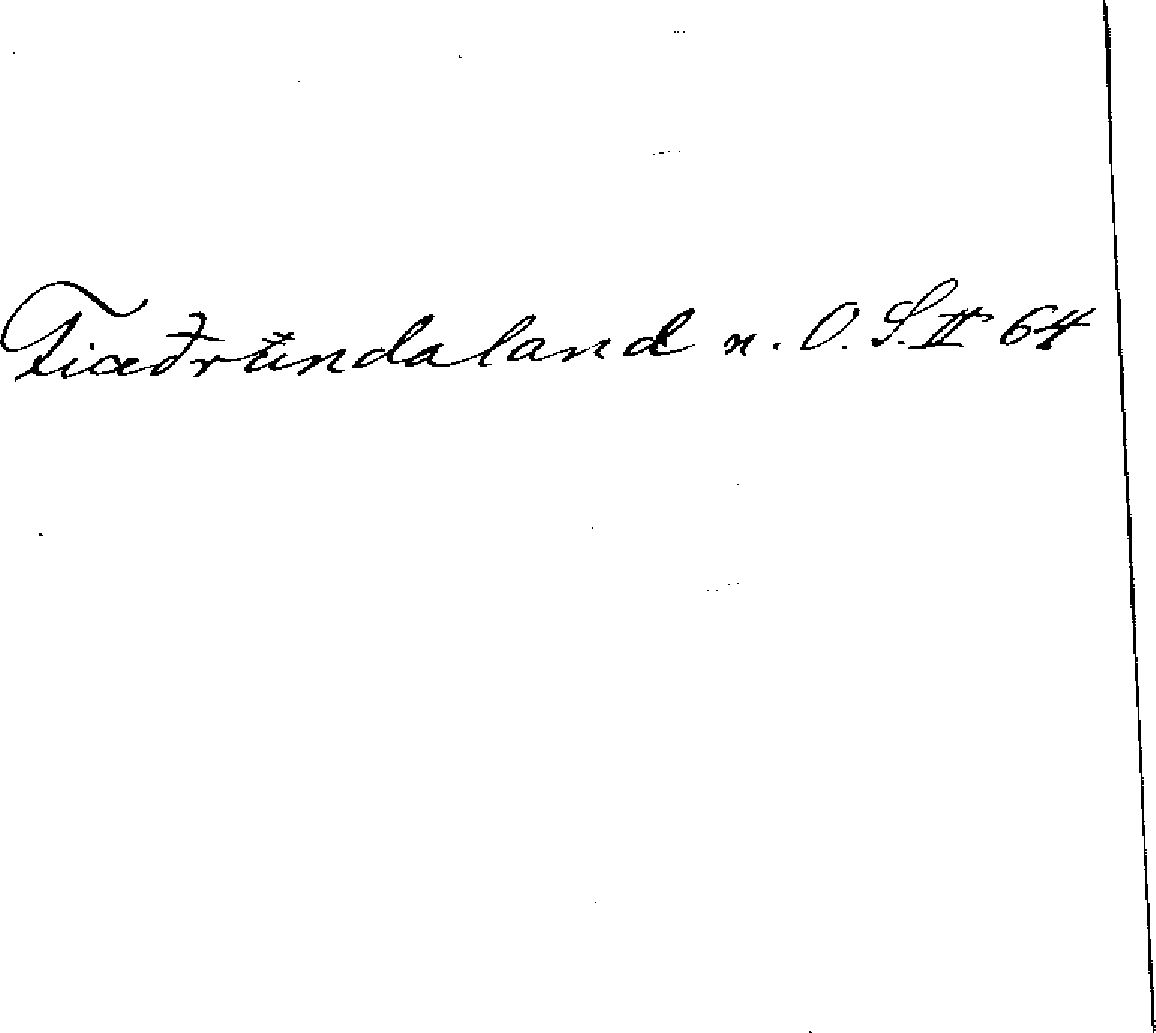 Fiæðrundaland n. O. S. II 64